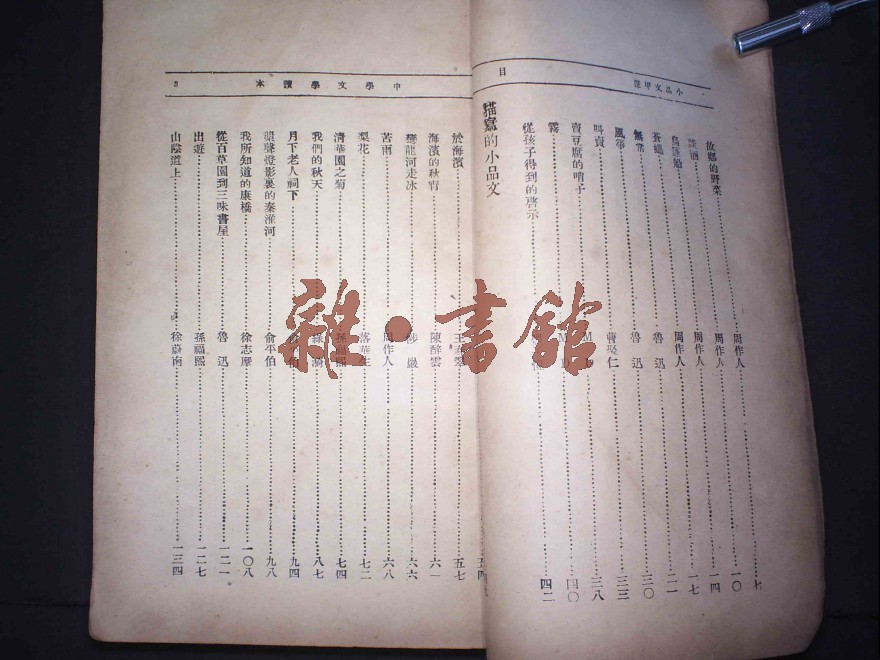 小品文甲選
目
故鄉的野菜 周作人 七
談酒 周作人 一〇
烏篷船 周作人 一四
蒼蠅 周作人 一七
無常 魯迅 二一
風箏 魯迅 三〇
叫賣 曹聚仁 三三
賣豆腐的哨子 三八
霧 四〇
從孩子得到的啓示 四二
描寫的小品文
中學文學讀本
五四
於海濱 五七
海濱的秋宵 陳醉雲 六一
龍河走冰 六六
苦雨 周作人 六八
梨花 落華生 七二
清華園之菊 孫福熙 七四
我們的秋天 綠漪 八七
月下老人祠下 九四
槳聲燈影裏的秦淮河 俞平伯 九八
我所知道的康橋 徐志摩 一〇八
從百草園到三味書屋 魯迅 一二一
出遊 孫福熙 一二七
山陰道上 徐蔚南 一三四
雜·書館